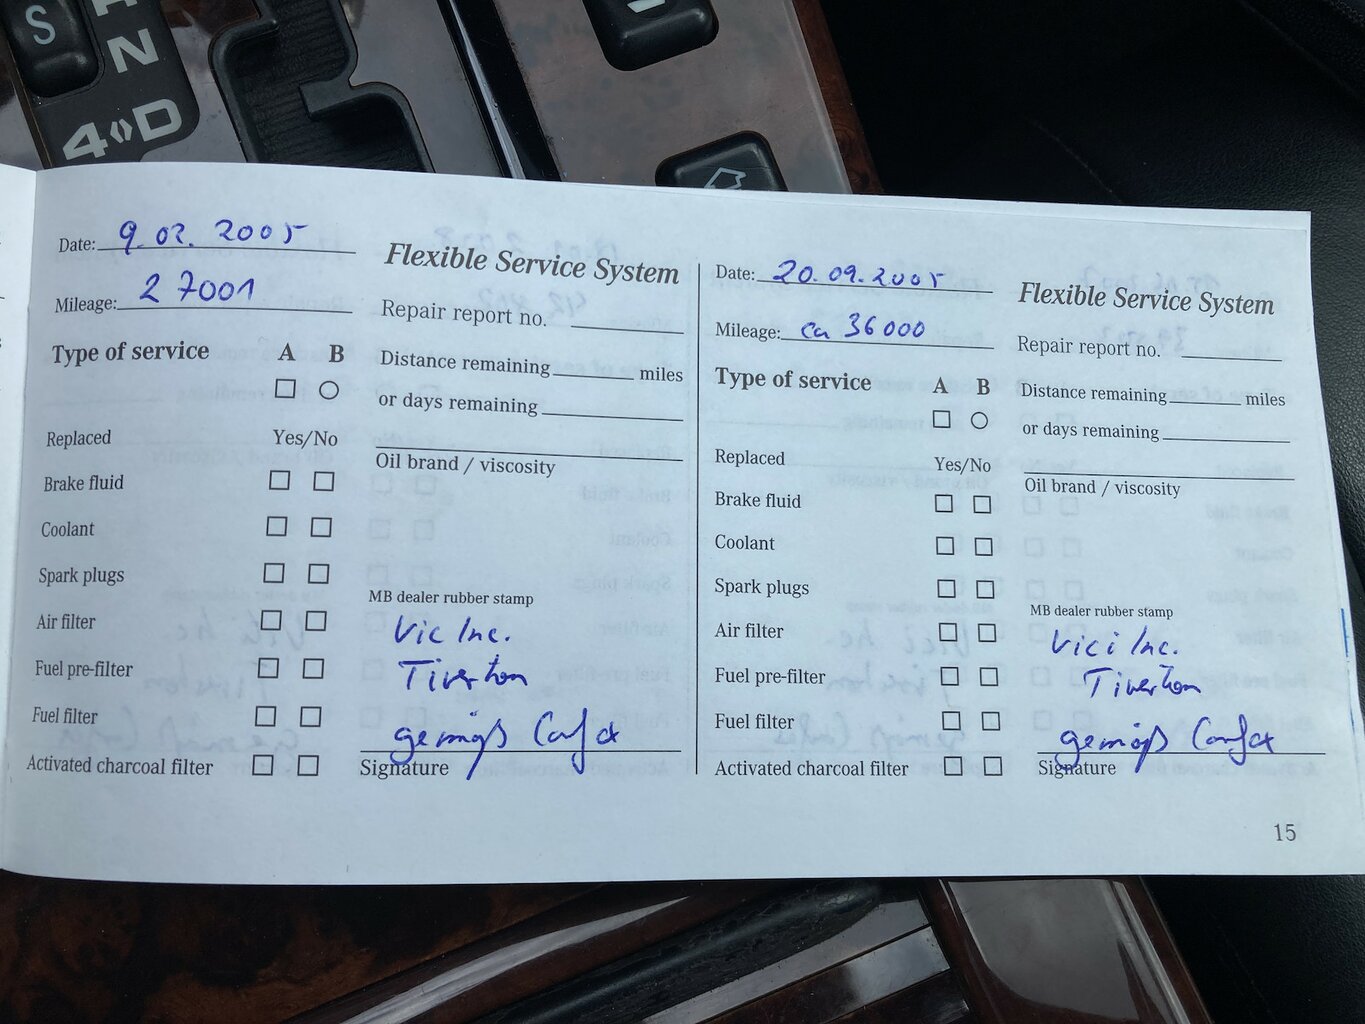 S
N
4«»D
Date: 9.02.2005
Mileage: 27001
Flexible Service System
Repair report no.
Type of service A B
Distance remaining miles
or days remaining
Replaced Yes/No
Oil brand / viscosity
Brake fluid
Coolant
Spark plugs
Air filter
Fuel pre-filter
Fuel filter
Activated charcoal filter
MB dealer rubber stamp
Vic Inc.
Tiverton
gemäß Carfax
Signature
Date: 20.09.2005
Mileage: ca 36000
Flexible Service System
Repair report no.
Type of service A B
Distance remaining miles
or days remaining
Replaced Yes/No
Oil brand / viscosity
Brake fluid
Coolant
Spark plugs
Air filter
Fuel pre-filter
Fuel filter
Activated charcoal filter
MB dealer rubber stamp
Vici Inc.
Tiverton
gemäß Carfax
Signature
15